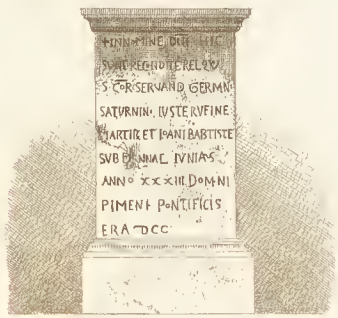 + INN·MINE DNI HIC
SUNT RECONDITE RELQU
S C̄OR SERVAND GERMN
SATURNINI· IUSTE RUFINE
MARTIR ET IOANI BAPTISTE
SVB D NNAL IVNIAS
ANNO XXXIII DOMNI
PIMENI PONTIFICIS
ERA DCC